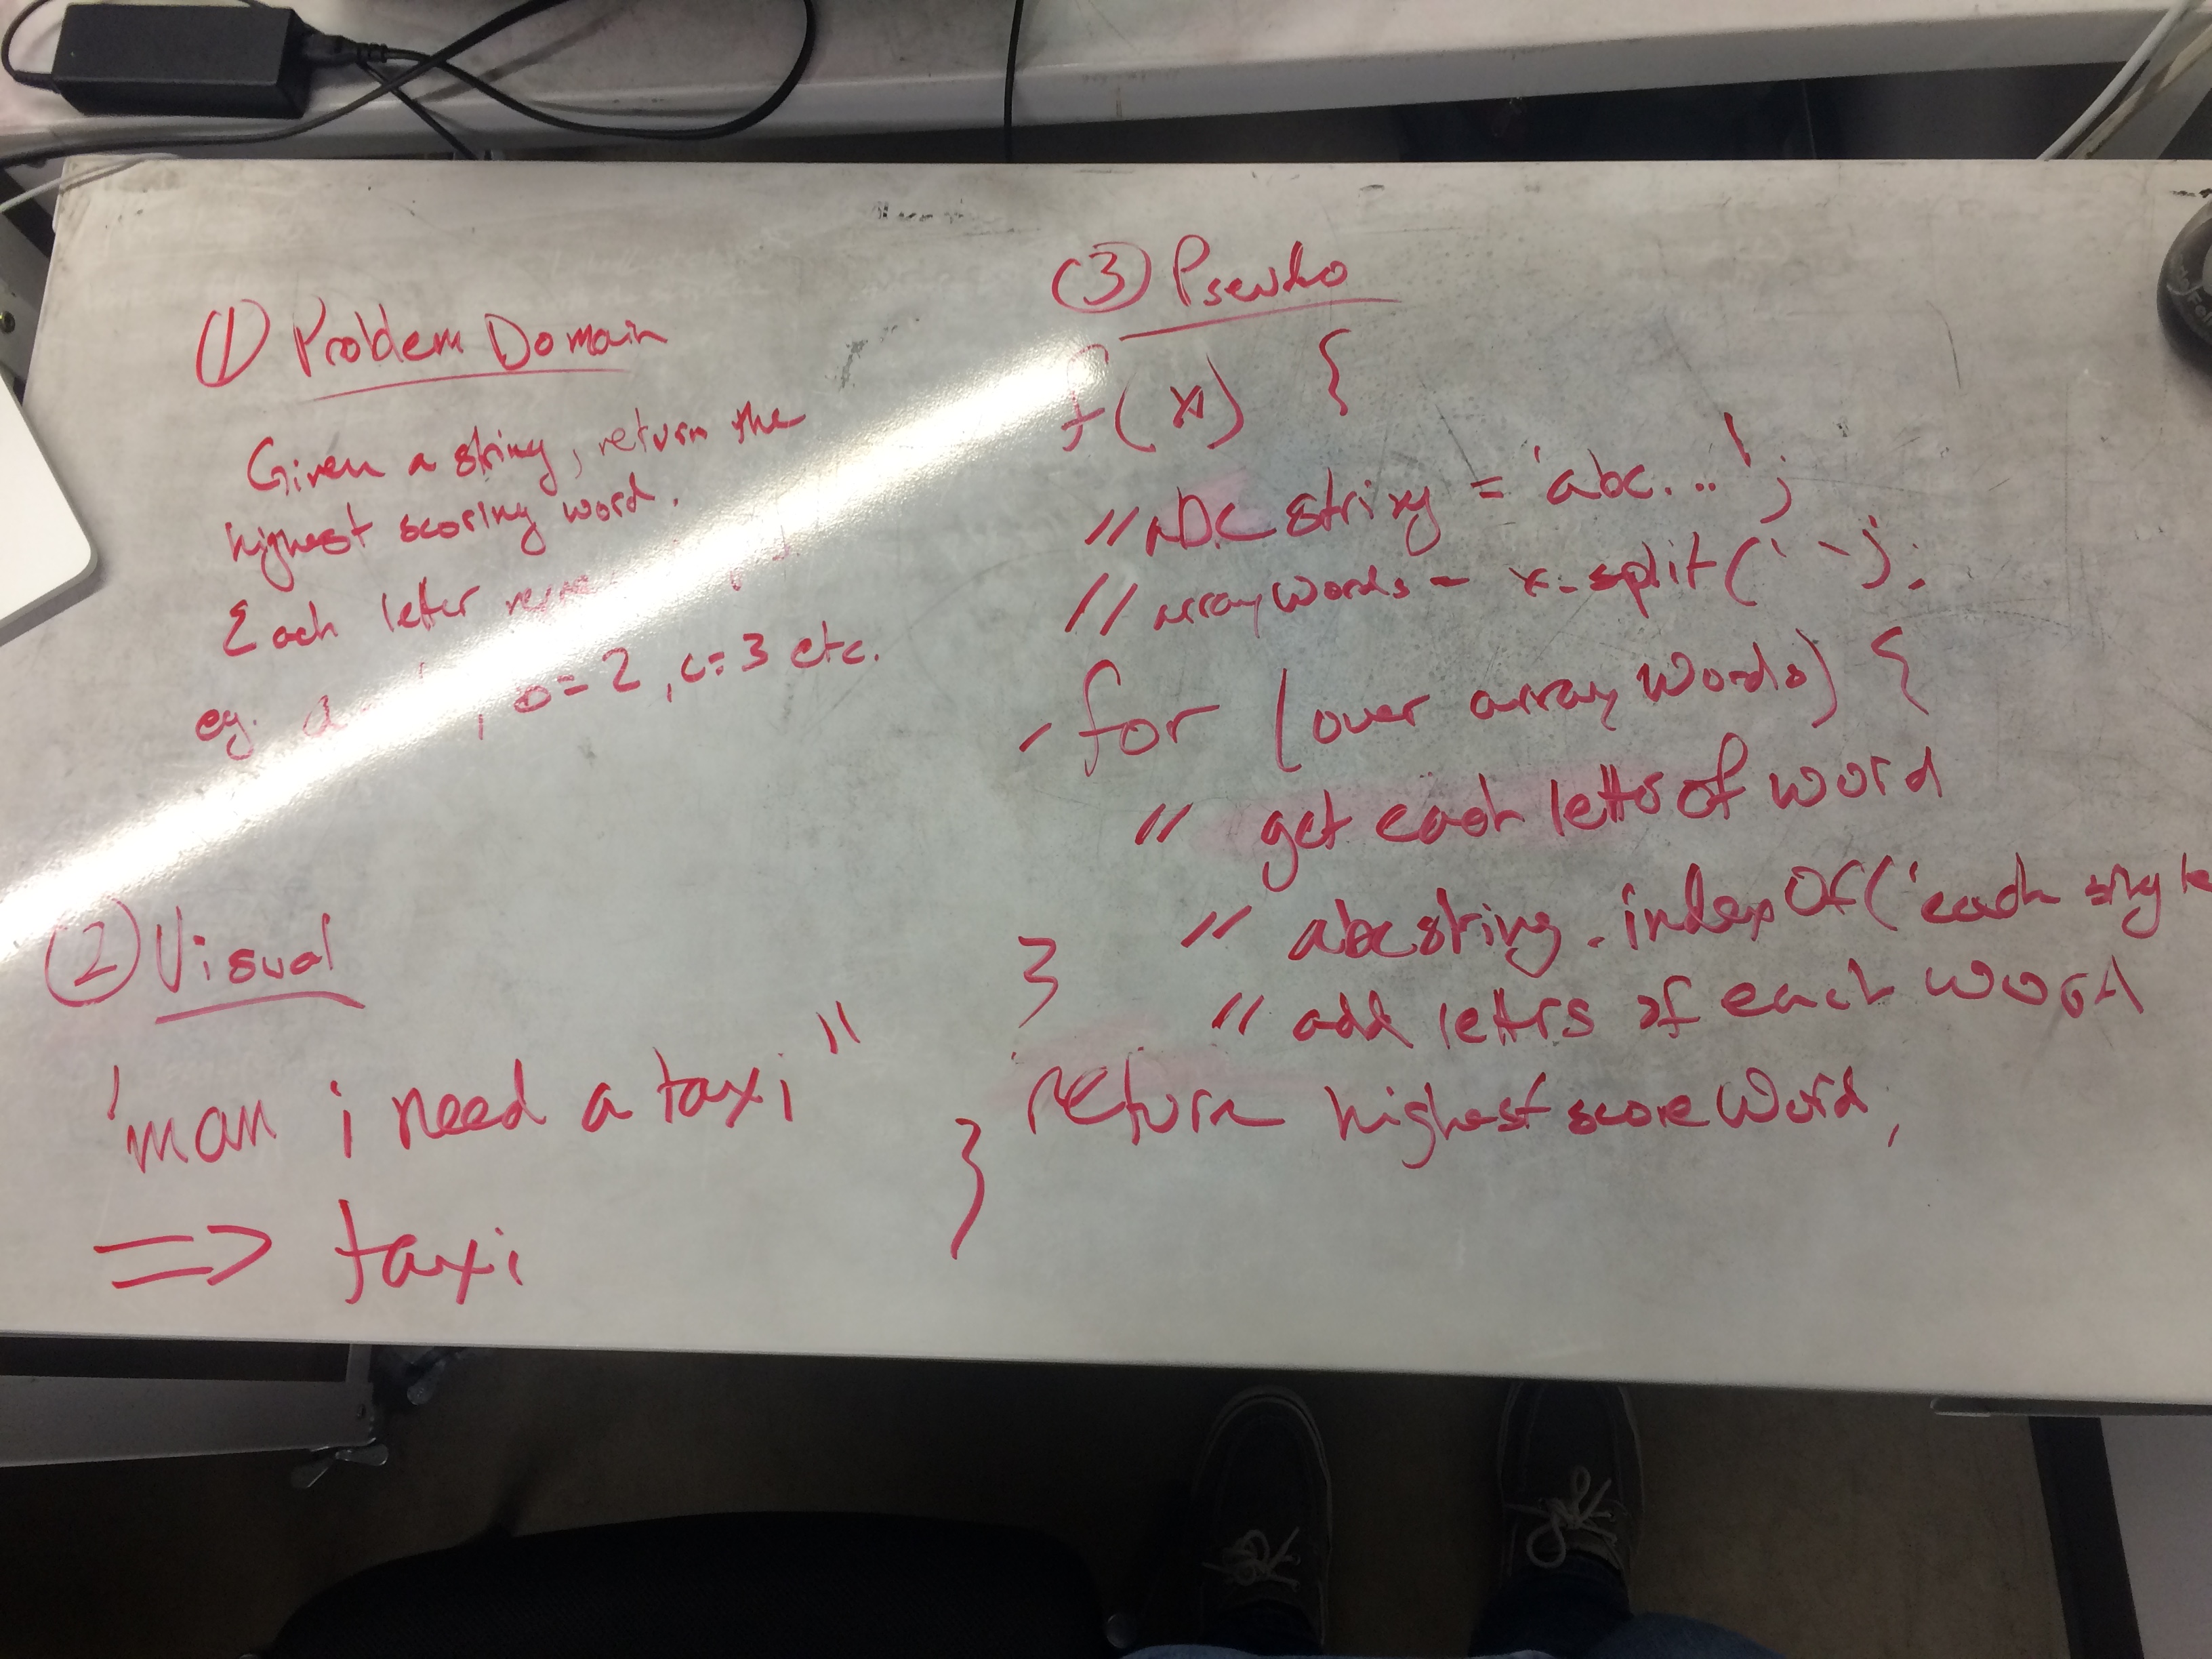 (1) Problem Domain
Given a string, return the
highest scoring word.
Each letter
eg. a = 2, c = 3 etc.
(2) Visual
' man i need a taxi "
=> taxi
(3) Pseudo
f(x) {
// abc string = 'abc...';
// array words = x.split(' ');
- for (over array words) {
// get each letter of word
// abcstring.indexOf('each
// add letters of each word
}
return highest score word,
}